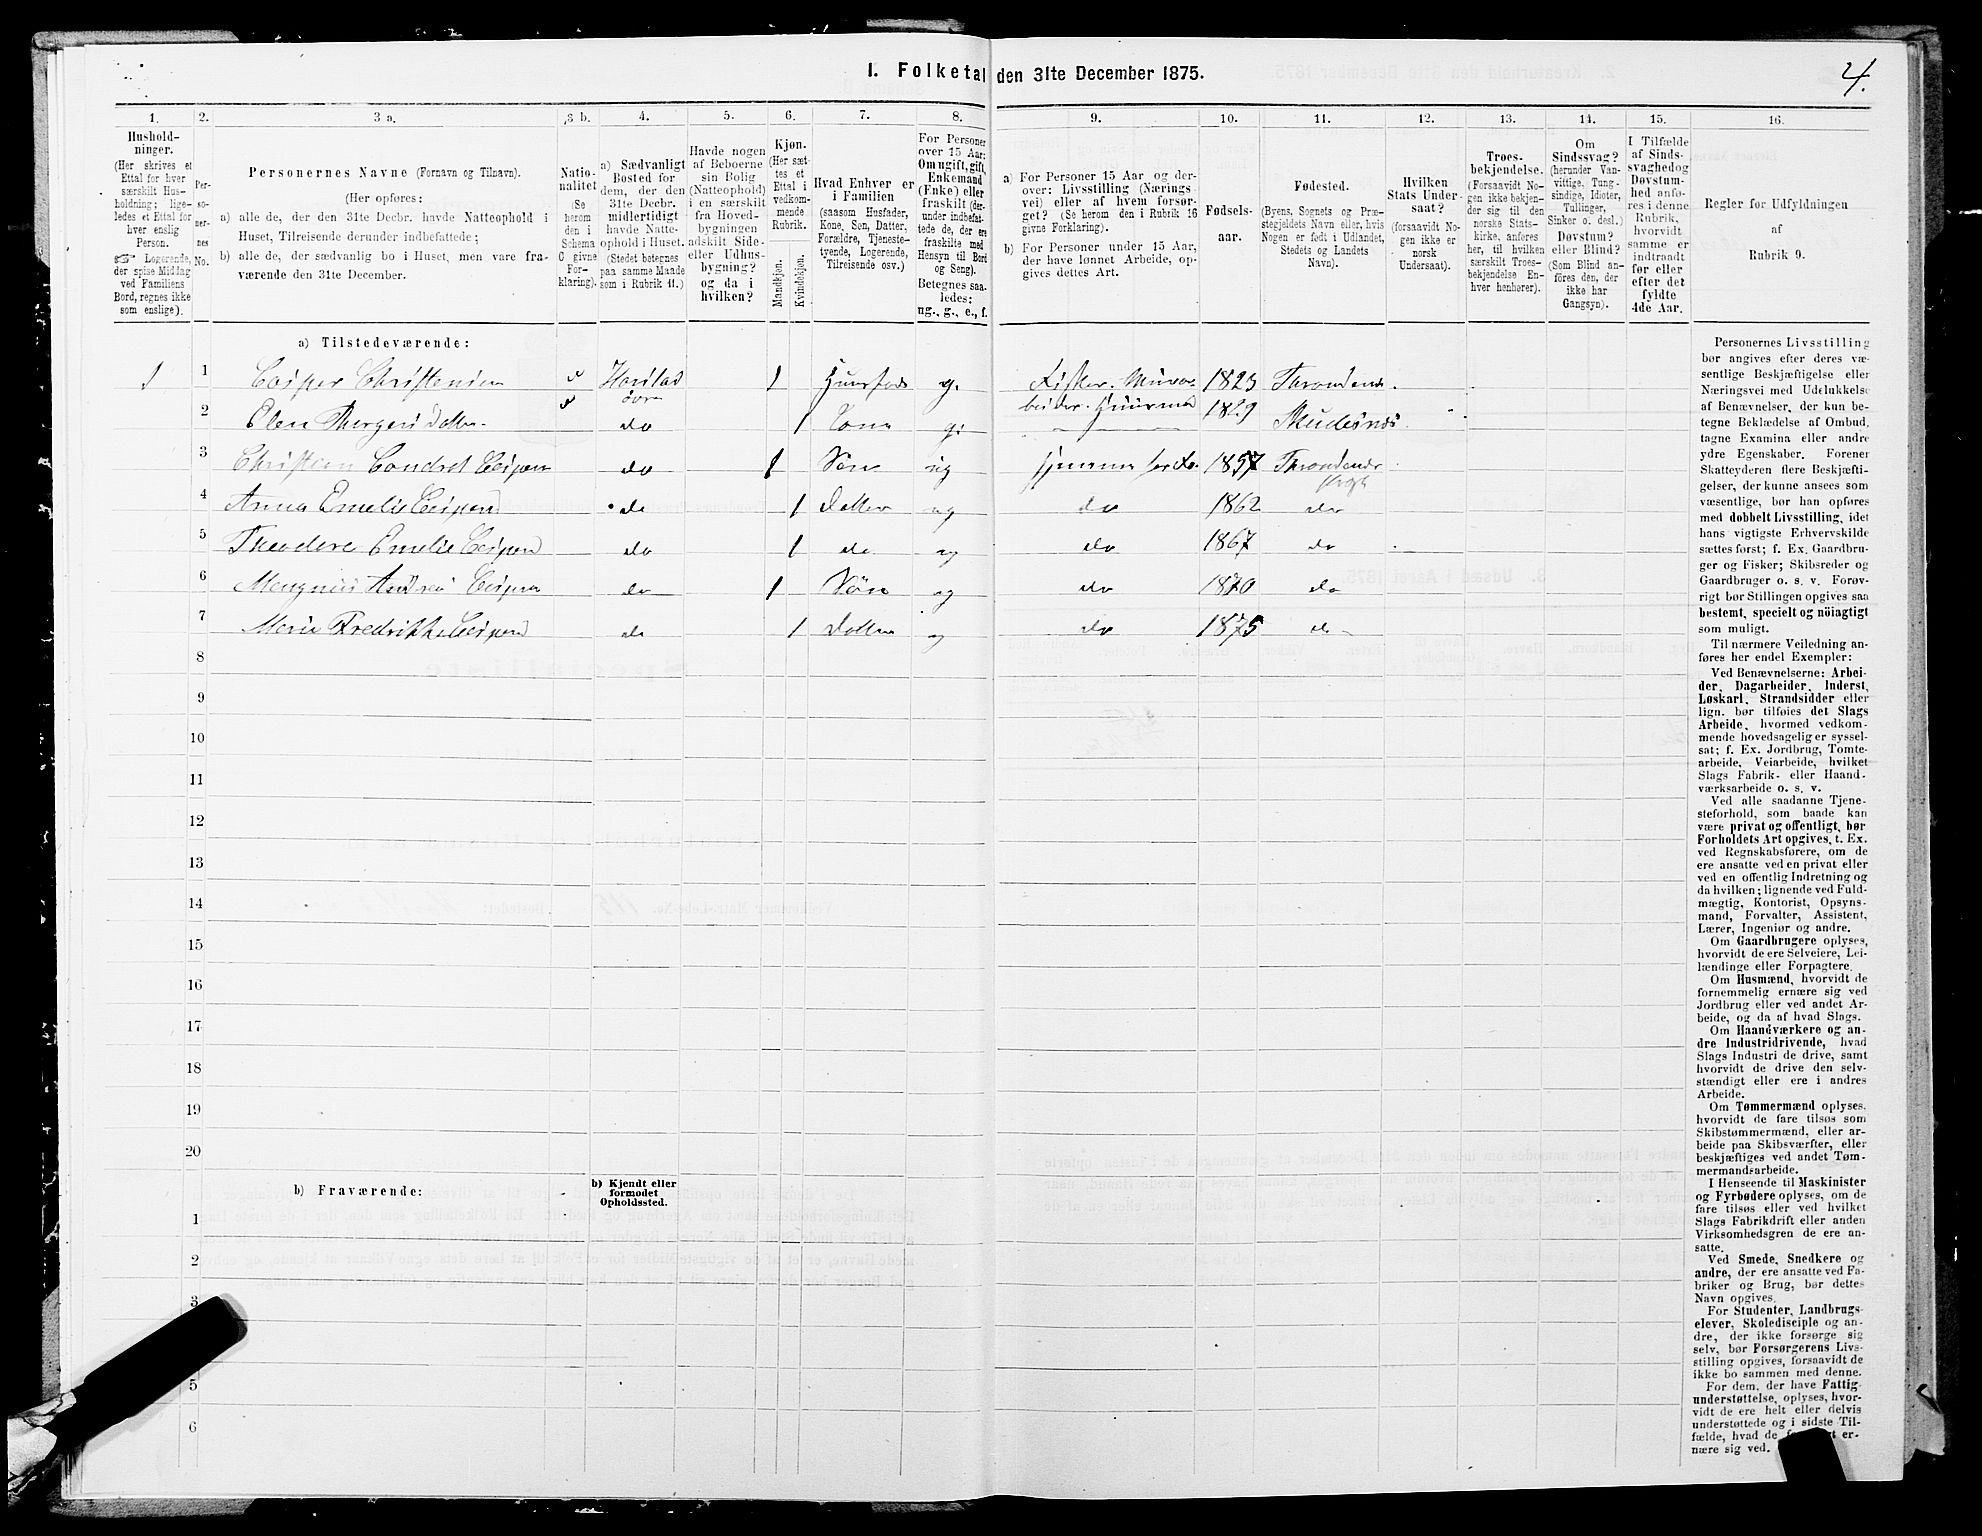 I. Folketal den 31te December 1875.
4.
1. 2. 3 a. 3 b. 4. 5. 6. 7. 8. 9. 10. 11. 12. 13. 14. 15. 16.
Hushold-
ninger.
(Her skrives et
Ettal for hver
særskilt Hus-
holdning; lige-
ledes et Ettal for
hver enslig
Person.
☞ Logerende,
der spise Middag
ved Familiens
Bord, regnes ikke
som enslige).
Per-
so-
ner-
nes
No.
Personernes Navne (Fornavn og Tilnavn).
(Her opføres:
a) alle de, der den 31te Decbr. havde Natteophold i
Huset, Tilreisende derunder indbefattede;
b) alle de, der sædvanlig bo i Huset, men vare fra-
værende den 31te December.
Natio-
nalitet
(Se
herom
den i
Schema
C givne
For-
klaring).
a) Sædvanligt
Bosted for
dem, der den
31te Decbr.
midlertidigt
havde Natte-
ophold i Huset.
(Stedet betegnes
paa samme Maade
som i Rubrik 11.)
Havde nogen
af Beboerne
sin Bolig
(Natteophold)
i en særskilt
fra Hoved-
bygningen
adskilt Side-
eller Udhus-
bygning?
og da i
hvilken?
Kjøn.
(Her sæt-
tes et
Ettal i
vedkom-
mende
Rubrik.
Mandkjøn.
Kvindekjøn.
Hvad Enhver er
i Familien
(saasom Husfader,
Kone, Søn, Datter,
Forældre, Tjeneste-
tyende, Logerende,
Tilreisende osv.)
For Personer
over 15 Aar:
Om ugift, gift,
Enkemand
(Enke) eller
fraskilt (der-
under indbefat-
tede de, der ere
fraskilte med
Hensyn til Bord
og Seng).
Betegnes saa-
ledes:
ug., g., e., f.
a) For Personer 15 Aar og der-
over: Livsstilling (Nærings-
vei) eller af hvem forsør-
get? (Se herom den i Rubrik 16
givne Forklaring).
b) For Personer under 15 Aar,
der have lønnet Arbeide, op-
gives dettes Art.
Fødsels-
aar.
Fødested.
(Byens, Sognets og Præ-
stegjeldets Navn eller, hvis
Nogen er født i Udlandet,
Stedets og Landets
Navn).
Hvilken
Stats Under-
saat?
(forsaavidt No-
gen ikke er
norsk
Undersaat).
Troes-
bekjendelse.
(Forsaavidt No-
gen ikke bekjen-
der sig til den
norske Stats-
kirke, anføres
her, til hvilken
særskilt Troes-
bekjendelse En-
hver henhører).
Om
Sindssvag?
(herunder Van-
vittige, Tung-
sindige, Idioter,
Tullinger,
Sinker o. desl.)
Døvstum?
eller Blind?
(Som Blind an-
føres den, der
ikke har
Gangsyn).
I Tilfælde
af Sinds-
svaghed og
Døvstum-
hed anfø-
res i denne
Rubrik,
hvorvidt
samme er
indtraadt
før eller
efter det
fyldte
4de Aar.
Regler for Udfyldningen
af
Rubrik 9.
a) Tilstedeværende:
1 1 Casper Christensen Harstad øvre 1 Huusfader g. Fisker. 1823 Throndenes.
2 Elen Bergeri do 1 Kone g. 1829
3 Christian Condrat Caspers. do 1 Søn ug 1857 Throndenes
4 Anna Emelie Caspersd do 1 Datter ug do 1862 do
5 Theodore Emelie Caspersd do 1 do ug do 1867 do
6 Andrea Caspersen do 1 Søn ug do 1870 do
7 Marie Fredrikke Caspersd do 1 Datter ug do 1875 do
8
9
10
11
12
13
14
15
16
17
18
19
20
b) Fraværende:
b) Kjendt eller
formodet
Opholdssted.
1
2
3
5
6
Personernes Livsstilling
bør angives efter deres væ-
sentlige Beskjæftigelse eller
Næringsvei med Udelukkelse
af Benævnelser, der kun be-
tegne Beklædelse af Ombud,
tagne Examina eller andre
ydre Egenskaber. Forener
Skatteyderen flere Beskjæfti-
gelser, der kunne ansees som
væsentlige, bør han opføres
med dobbelt Livsstilling, idet
hans vigtigste Erhvervskilde
sættes først; f. Ex. Gaardbru-
ger og Fisker; Skibsreder og
Gaardbruger o. s. v. Forøv-
rigt bør Stillingen opgives saa
bestemt, specielt og nöiagtigt
som muligt.
Til nærmere Veiledning an-
føres her endel Exempler:
Ved Benævnelserne: Arbei-
der, Dagarbeider, Inderst,
Løskarl, Strandsidder eller
lign. bør tilføies det Slags
Arbeide, hvormed vedkom-
mende hovedsagelig er syssel-
sat; f. Ex. Jordbrug, Tomte-
arbeide, Veiarbeide, hvilket
Slags Fabrik- eller Haand-
værksarbeide o. s. v.
Ved alle saadanne Tjene-
steforhold, som baade kan
være privat og offentligt, bør
Forholdets Art opgives, t. Ex.
ved Regnskabsførere, om de
ere ansatte ved en privat eller
ved en offentlig Indretning og
da hvilken; lignende ved Fuld-
mægtig, Kontorist, Opsyns-
mand, Forvalter, Assistent,
Lærer, Ingeniør og andre.
Om Gaardbrugere oplyses,
hvorvidt de ere Selveiere, Lei-
lændinge eller Forpagtere.
Om Husmænd, hvorvidt de
fornemmelig ernære sig ved
Jordbrug eller ved andet Ar-
beide, og da af hvad Slags.
Om Haandværkere og an-
dre Industridrivende, hvad
Slags Industri de drive, samt
hvorvidt de drive den selv-
stændigt eller ere i andres
Arbeide.
Om Tømmermænd oplyses,
hvorvidt de fare tilsøs som
Skibstømmermænd, eller ar-
beide paa Skibsværfter, eller
beskjæftiges ved andet Tøm-
mermandsarbeide.
I Henseende til Maskinister
og Fyrbødere oplyses, om de
fare tilsøs eller ved hvilket
Slags Fabrikdrift eller anden
Virksomhedsgren de ere an-
satte.
Ved Smede, Snedkere og
andre, der ere ansatte ved Fa-
briker og Brug, bør dettes
Navn opgives.
For Studenter, Landbrugs-
elever, Skoledisciple og an-
dre, der ikke forsørge sig
selv, bør Forsørgerens Livs-
stilling opgives, forsaavidt de
ikke bo sammen med denne.
For dem, der have Fattig-
understøttelse, oplyses, hvor-
vidt de ere helt eller delvis
understøttede og i sidste Til-
fælde, hvad de er-
nære sig ved.